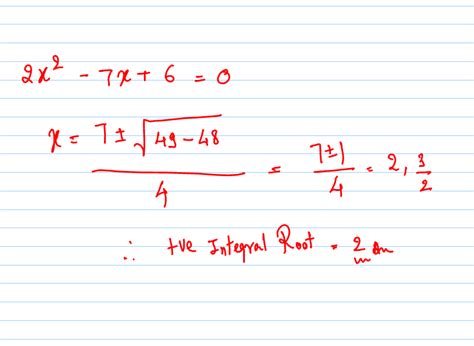 2x² - 7x + 6 = 0
x = (7 ± √(49 - 48))/4 = (7 ± 1)/4 = 2, 3/2
∴ +ve Integral Root = 2 Ans